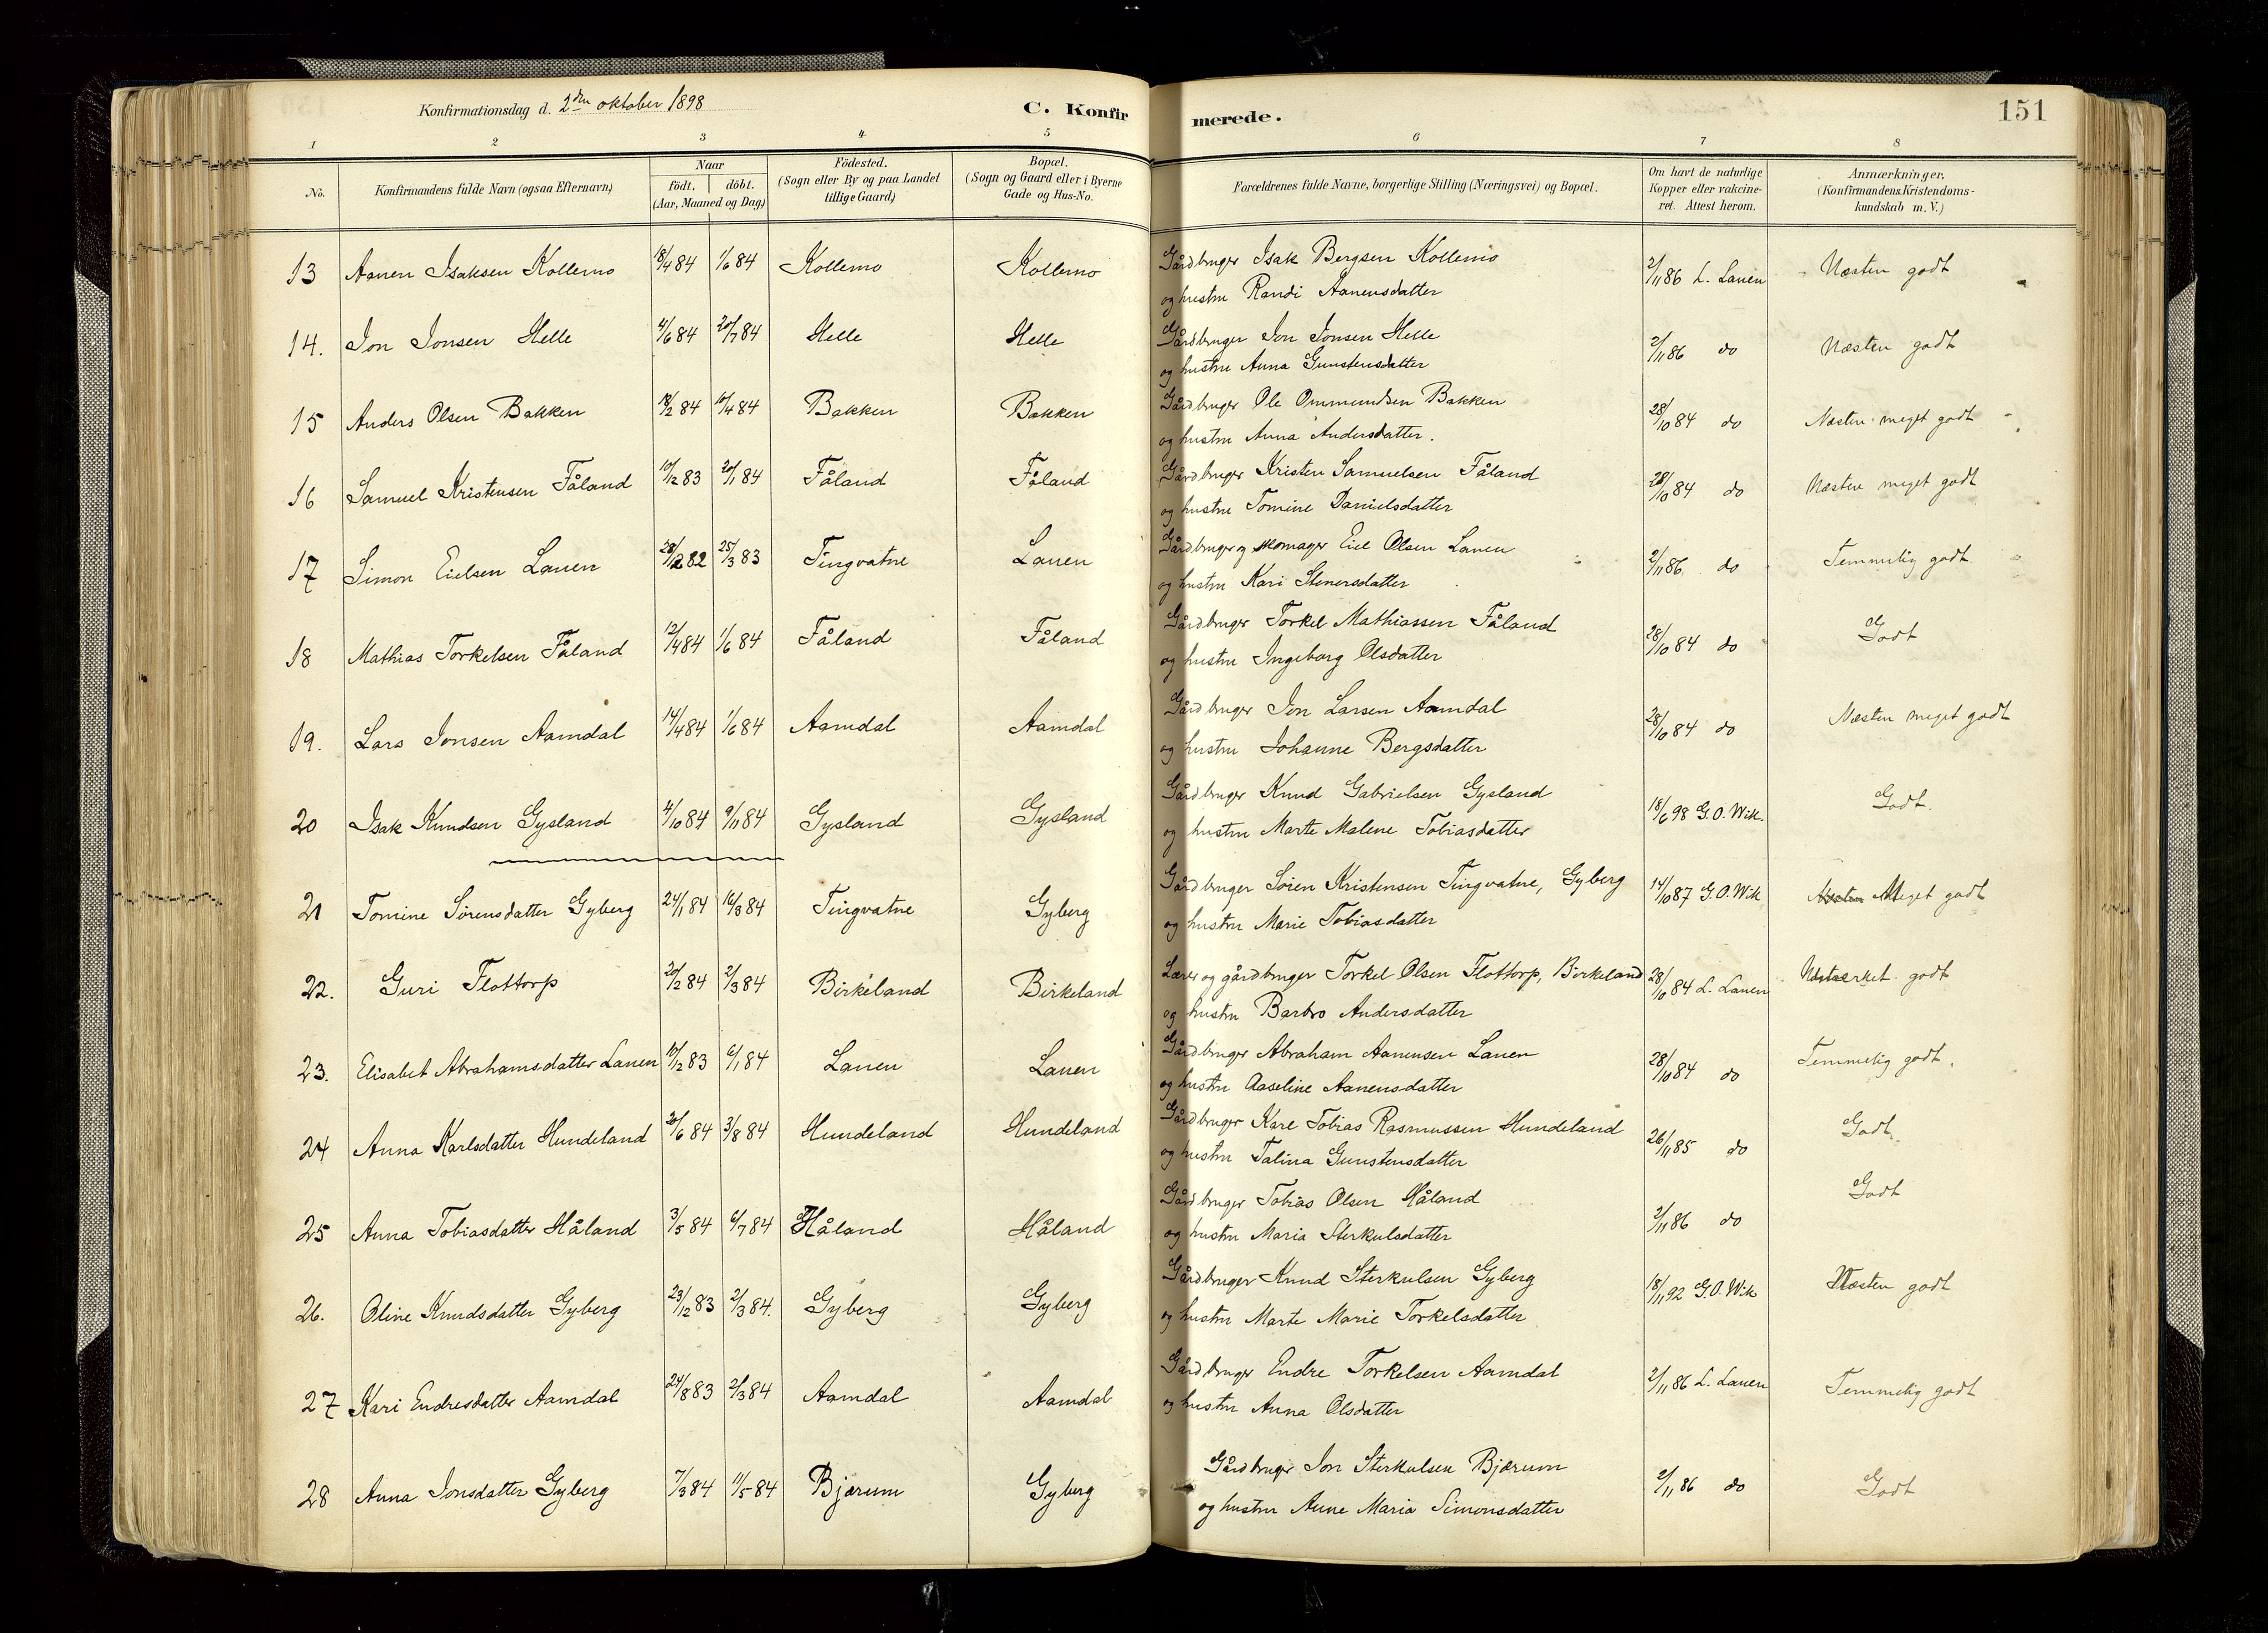 Konfirmationsdag d. 2den oktober 1898 C. Konfirmerede. 151
1 2 3 4 5 6 7 8
No. Konfirmandens fulde Navn (ogsaa Efternavn) Naar födt. döbt. (Aar, Maaned og Dag) Födested. (Sogn eller By og paa Landet tillige Gaard) Bopæl. (Sogn og Gaard eller i Byerne Gade og Hus-No. Forældrenes fulde Navne, borgerlige Stilling (Næringsvei) og Bopæl. Om havt de naturlige Kopper eller vakcineret. Attest herom. Anmærkninger. (Konfirmandens Kristendomskundskab m. V.)
13 Aanen Isaksen Kollemo 18/4 84 1/6 84 Kollemo Kollemo Gårdbruger Isak Bergsen Kollemo 2/11 86 L. Lauen Næsten godt
og hustru Randi Aanensdatter
14. Jon Jonsen Helle 4/6 84 20/7 84 Helle Helle Gårdbruger Jon Jonsen Helle 2/11 86 do Næsten godt
og hustru Anna Gunstensdatter
15 Anders Olsen Bakken 18/2 84 10/4 84 Bakken Bakken Gårdbruger Ole Ommundsen Bakken 28/10 84 do Næsten meget godt
og hustru Anna Andersdatter.
16 Samuel Kristensen Fåland 10/12 83 20/1 84 Fåland Fåland Gårdbruger Kristen Samuelsen Fåland 28/10 84 do Næsten meget godt
og hustru Tomine Danielsdatter
17 Simon Eielsen Lauen 28/12 82 25/3 83 Tingvatne Lauen Gårdbruger og skomager Eiel Olsen Lauen 2/11 86 do Temmelig godt
og hustru Kari Stenersdatter
18 Mathias Torkelsen Fåland 12/4 84 1/6 84 Fåland Fåland Gårdbruger Torkel Mathiassen Fåland 28/10 84 do Godt
og hustru Ingeborg Olsdatter
19. Lars Jonsen Aamdal 14/4 84 1/6 84 Aamdal Aamdal Gårdbruger Jon Larsen Aamdal 28/10 84 do Næsten meget godt
og hustru Johanne Bergsdatter
20 Isak Knudsen Gysland 4/10 84 9/11 84 Gysland Gysland Gårdbruger Knud Gabrielsen Gysland 18/6 98 G. O. Wik. Godt.
og hustru Marte Malene Tobiasdatter
21 Tomine Sörensdatter Gyberg 24/1 84 16/3 84 Tingvatne Gyberg Gårdbruger Sören Kristensen Tingvatne, Gyberg 14/10 87 G. O. Wik Meget godt
og hustru Marie Tobiasdatter
22. Guri Flottorp 20/2 84 2/3 84 Birkeland Birkeland Lærer og gårdbruger Torkel Olsen Flottorp, Birkeland 28/10 84 L. Lauen Udmærket godt
og hustru Barbro Andersdatter
23. Elisabet Abrahamsdatter Lauen 10/12 83 6/1 84 Lauen Lauen Gårdbruger Abraham Aanensen Lauen 28/10 84 do Temmelig godt.
og hustru Aaseline Aanensdatter
24 Anna Karlsdatter Hundeland 20/6 84 3/8 84 Hundeland Hundeland Gårdbruger Karl Tobias Rasmussen Hundeland 26/11 85 do Godt.
og hustru Talina Gunstensdatter
25 Anna Tobiasdatter Håland 3/5 84 6/7 84 Håland Håland Gårdbruger Tobias Olsen Håland 2/11 86 do Godt
og hustru Maria Sterkulsdatter
26. Oline Knudsdatter Gyberg 23/12 83 2/3 84. Gyberg Gyberg Gårdbruger Knud Sterkulsen Gyberg 18/11 92 G. O. Wik Næsten godt
og hustru Marte Marie Torkelsdatter
27 Kari Endresdatter Aamdal 24/8 83 2/3 84 Aamdal Aamdal Gårdbruger Endre Torkelsen Aamdal 2/11 86 L. Lauen Temmelig godt
og hustru Anna Olsdatter
28 Anna Jonsdatter Gyberg 7/3 84 11/5 84 Bjærum Gyberg Gårdbruger Jon Sterkulsen Bjærum 2/11 86 do Godt
og hustru Anne Maria Simonsdatter